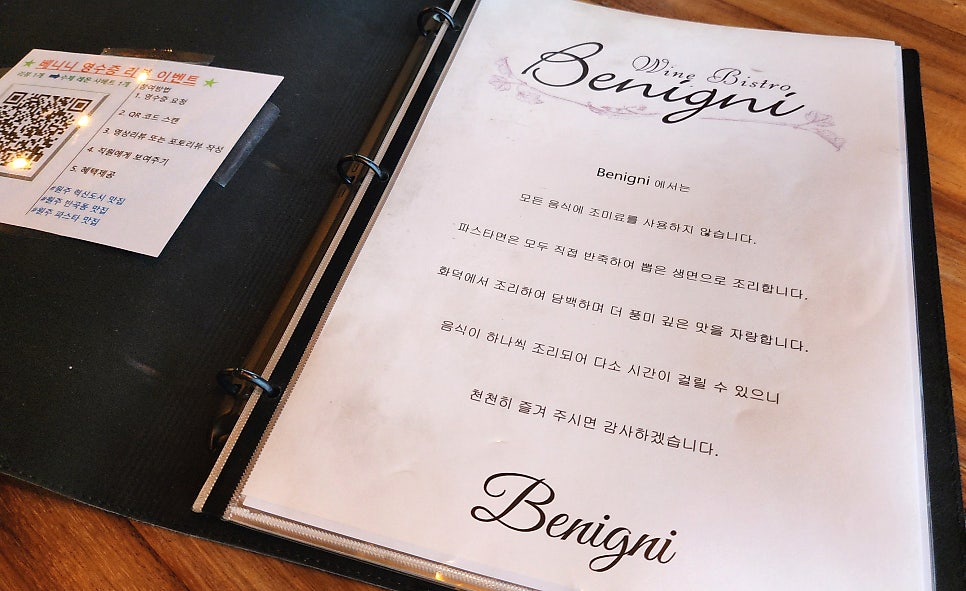 베니니 영수증 리뷰 이벤트
리뷰 1개 수제 레몬 샤베트 1개
참여방법
1. 영수증 요청
2. QR 코드 스캔
3. 영상리뷰 또는 포토리뷰 작성
4. 직원에게 보여주기
5. 혜택제공
#원주 혁신도시 맛집
#원주 반곡동 맛집
#원주 파스타 맛집
Wine Bistro
Benigni
Benigni 에서는
모든 음식에 조미료를 사용하지 않습니다.
파스타면은 모두 직접 반죽하여 뽑은 생면으로 조리합니다.
화덕에서 조리하여 담백하며 더 풍미 깊은 맛을 자랑합니다.
음식이 하나씩 조리되어 다소 시간이 걸릴 수 있으니
천천히 즐겨 주시면 감사하겠습니다.
Benigni